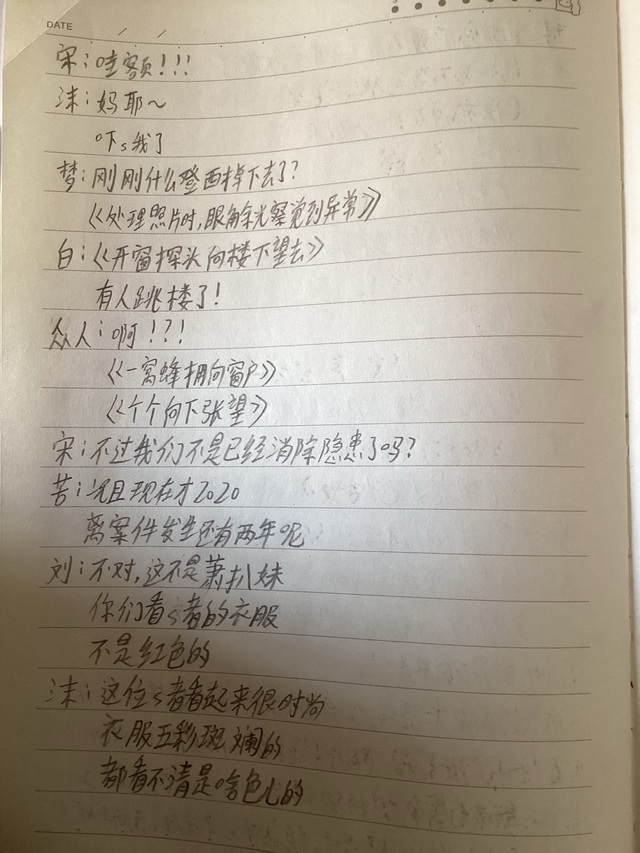 DATE / /
宋：哇靠！！！
沫：妈耶～
吓s我了
梦：刚刚什么登西掉下去了？
《处理照片时，眼角余光察觉到异常》
白：《开窗探头向楼下望去》
有人跳楼了！
众人：啊！？！
《一窝蜂拥向窗户》
《个个向下张望》
宋：不过我们不是已经消除隐患了吗？
苦：况且现在才2020
离案件发生还有两年呢
刘：不对，这不是萧扒妹
你们看s者的衣服
不是红色的
沫：这位s者看起来很时尚
衣服五彩斑斓的
都看不清是啥色儿的